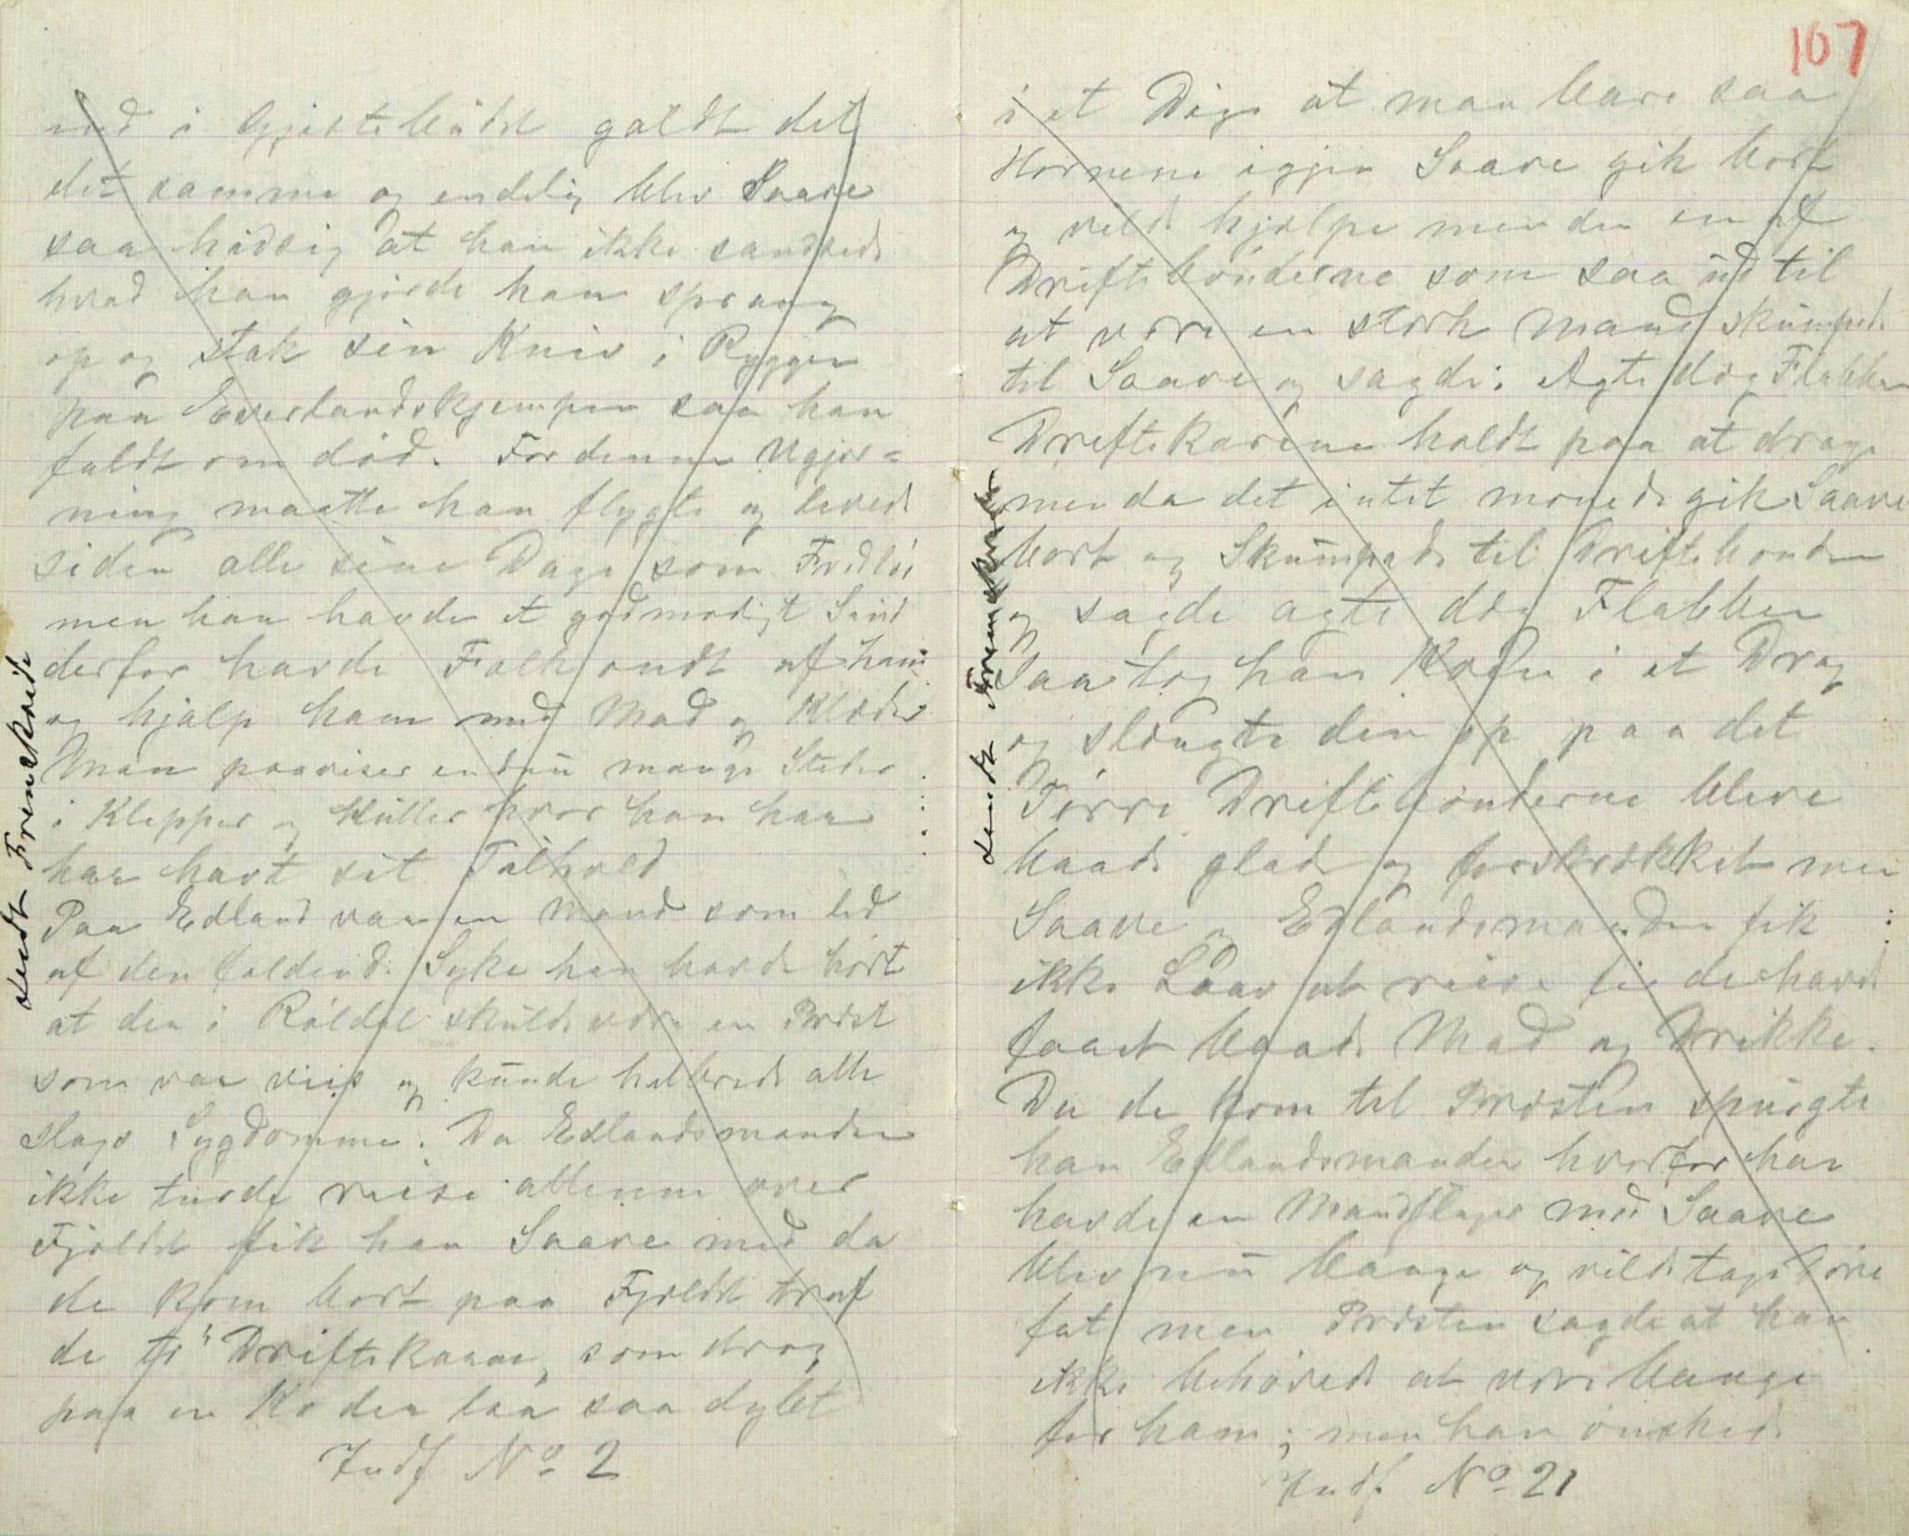 ned i Gjestebüdet galdt det
det samme og endelig blev Saave
saa hidsig at han ikke sandsede
hvad han gjorde han sprang
op og stak sin Kniv i Ryggen
paa Everlandskjempen saa han
faldt om död. For denne Ugjer=
ning maatte han flygte og levede
siden alle sine Dage som Fredlös
men han havde et godmodigt Sind
derfor havde Folk ondt af ham
og hjalp ham med Mad og Klæder
Man paaviser endnü mange Steder
i Klepper og Hütler hvor han har
har havt sit Tilhold
Paa Edland var en Mand som led
af den faldende Syke han havde hört
at der i Röldal skülde være en Præst
som var viis og künde helbrede alle
slags Sygdomme. Da Edlandsmanden
ikke turde reise allene over
Fjeldet fik han Saave med da
de kom bort paa Fjeldet traf
de to Driftekarar, som drog
paa en Ko der laa saa dybt
Indf No 2
sendt Fremskride
107
i et Dige at man bare saa
Hornene igjen Saave gik bort
og vilde hjælpe men den en af
Driftebönderne som saa üd til
at være en stærk mand skümpede
til Saave og sagde: Agte dig Flabben
Driftekarene holdt paa at drage
men da det intet monede gik Saave
bort og Skümpede til Driftebonden
og sagde agte dig Flabben
Saa tog han Koen i et Drag
og slængte den op paa det
Törre Driftebönderne bleve
baade glade og forskrækket men
Saave og Edlandsmanden fik
ikke Laav at reise för de havde
faaet baade Mad og Drikke.
Da de kom til Præsten spürgte
han Edlandsmanden hvorfor han
havde en Manddraper med Saave
blev nü bange og vilde tage
fat men Præsten sagde at han
ikke behövede at være bange
for ham; men han önskede
Indf. No 21
sendt Fremskrider